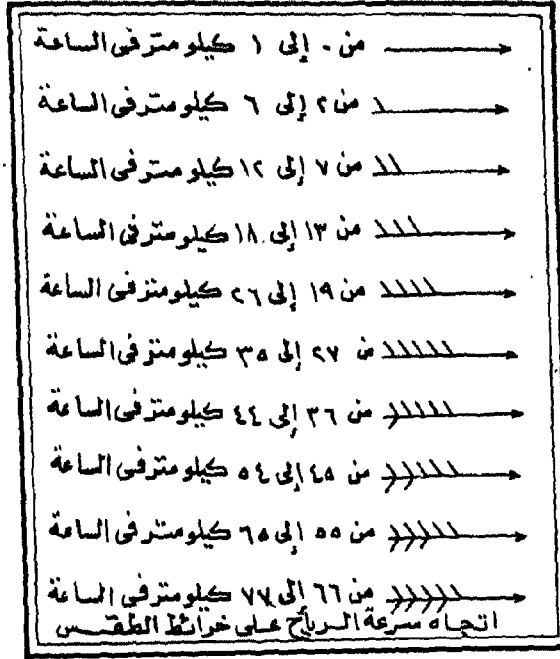 من ٠ إلى ١ كيلومتر فى الساعة
من ٢ إلى ٦ كيلومتر فى الساعة
من ٧ إلى ١٢ كيلومتر فى الساعة
من ١٣ إلى ١٨ كيلومتر فى الساعة
من ١٩ إلى ٢٦ كيلومتر فى الساعة
من ٢٧ إلى ٣٥ كيلومتر فى الساعة
من ٣٦ إلى ٤٤ كيلومتر فى الساعة
من ٤٥ إلى ٥٤ كيلومتر فى الساعة
من ٥٥ إلى ٦٥ كيلومتر فى الساعة
من ٦٦ إلى ٧٧ كيلومتر فى الساعة
اتجاه سرعة الرياح على خرائط الطقس